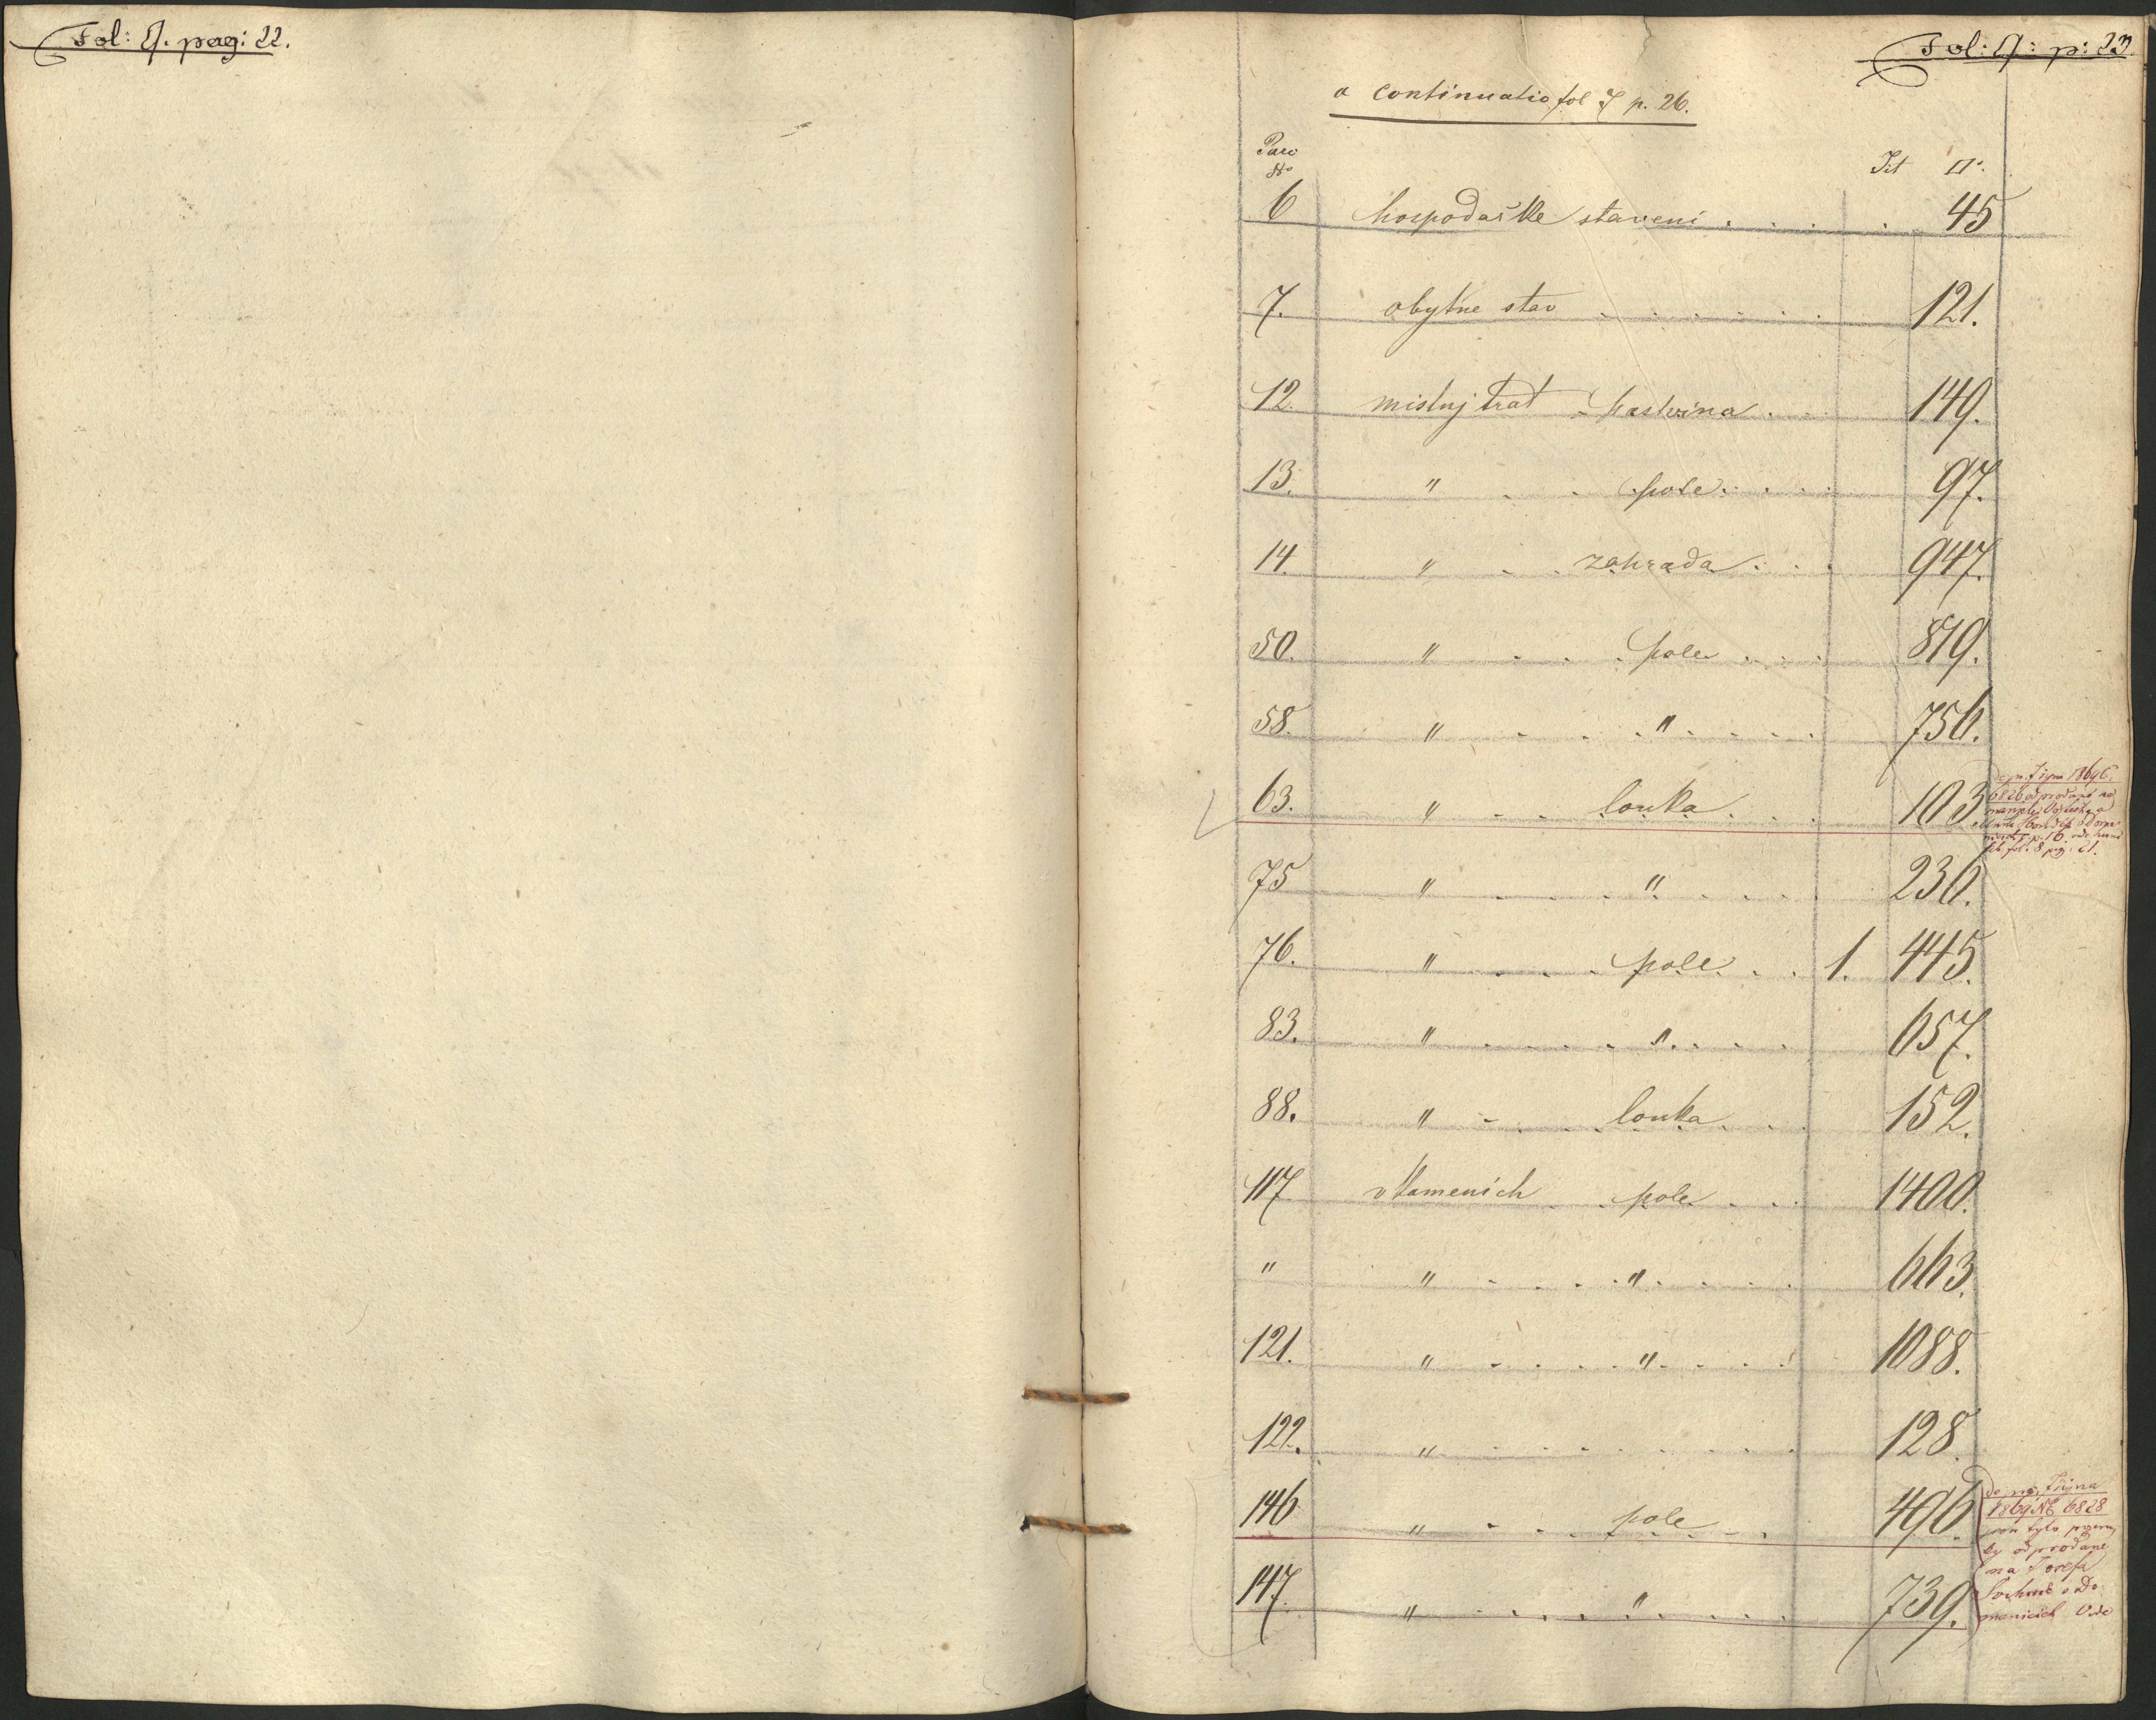 Fol: 9. pag: 22.
Fol: 9: p: 23.
a continuatio fol I p. 26.
Parc
No
Jit □°.
6 hospodařke staveni . . . . 45
7. obytne stav . . . . . . . 121.
12. mistnj trat - pastvina . . . 149.
13. " . . pole . . . . 97.
14. " . . zahrada . . . 947.
50. " . . . pole . . . 819.
58. " . . . " . . . . 756.
63. " . . louka . . . 103
75 " . . . " . . . . 236.
76. " . . . pole . . 1. 445.
83. " . . . . " . . . 657.
88. " . . . louka . . . 152.
117 v Kamenich . pole . . . 1400.
" " . . . " . . . . 663.
121. " . . . . " . . . . 1088.
122. " . . . . . . . . 128.
146 " . . . pole . . 496.
147. " . . . . " . . . . 739.
6826 odprodané na
fol. 8 pag. 21.
1869 NE 6828
odprodane
na Josefa